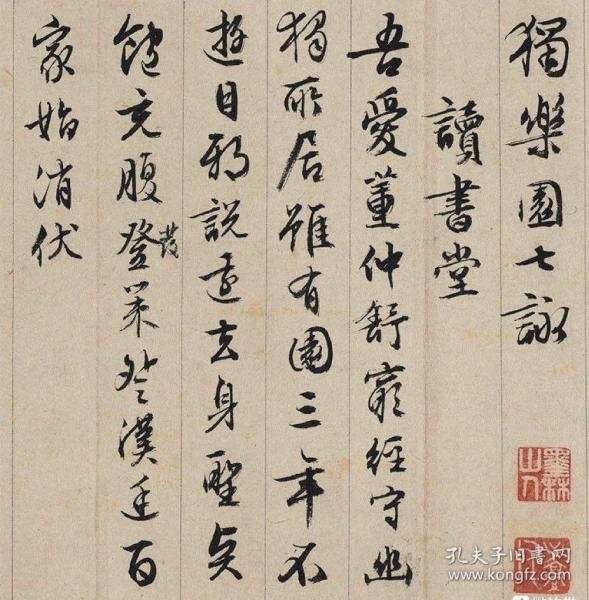 獨樂園七詠
讀書堂
吾愛董仲舒窮經守幽
獨所居雖有園三年不
遊目邪說遠去身聖言
飽充腹登策登漢廷百
發
家始消伏
墨林山人
孔夫子旧书网
www.kongfz.com